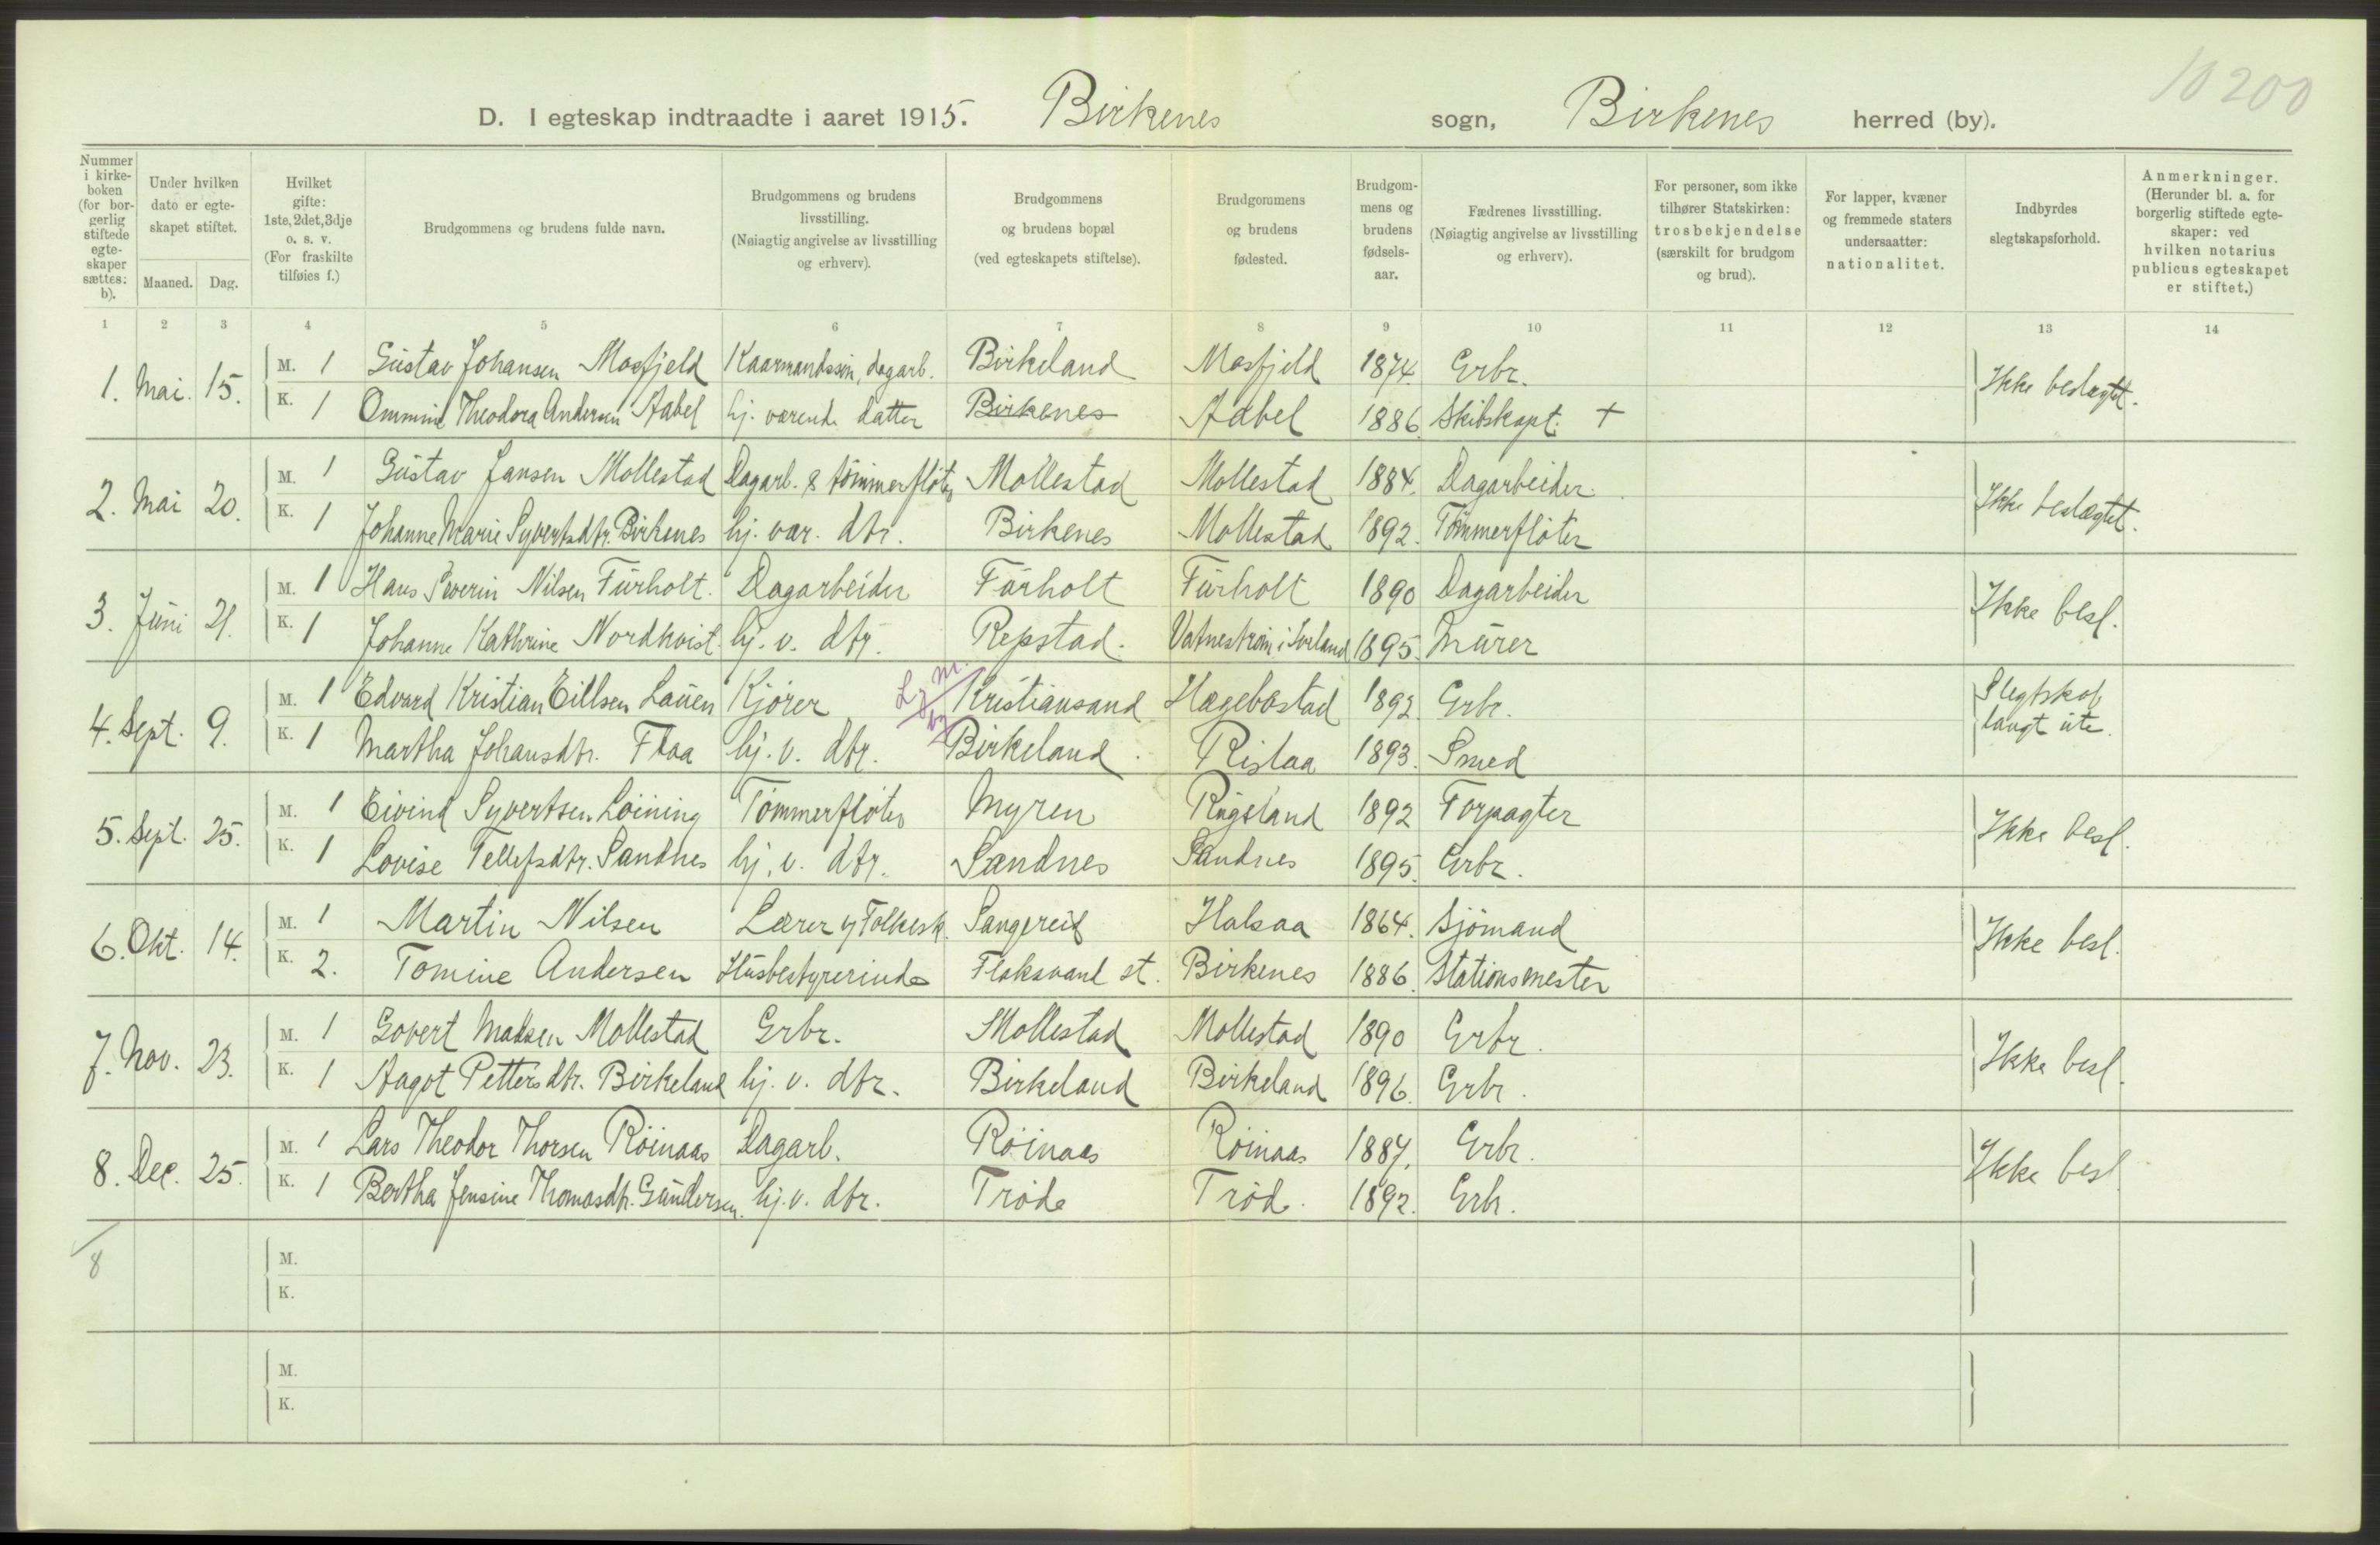 10 200
D. I egteskap indtraadte i aaret 1915. Birkenes sogn, Birkenes herred (by).
Nummer i kirke-boken (for bor-gerlig stiftede egte-skaper sættes: b).
Under hvilken dato er egte-skapet stiftet.
Maaned. Dag.
Hvilket gifte: 1ste, 2det, 3dje o. s. v. (For fraskilte tilføies f.)
Brudgommens og brudens fulde navn.
Brudgommens og brudens livsstilling. (Nøiagtig angivelse av livsstilling og erhverv).
Brudgommens og brudens bopæl (ved egteskapets stiftelse).
Brudgommens og brudens fødested.
Brudgom-mens og brudens fødsels-aar.
Fædrenes livsstilling. (Nøiagtig angivelse av livsstilling og erhverv).
For personer, som ikke tilhører Statskirken: trosbekjendelse (særskilt for brudgom og brud).
For lapper, kvæner og fremmede staters undersaatter: nationalitet.
Indbyrdes slegtskapsforhold.
Anmerkninger. (Herunder bl. a. for borgerlig stiftede egte-skaper: ved hvilken notarius publicus egteskapet er stiftet.)
1 2 3 4 5 6 7 8 9 10 11 12 13 14
1. Mai. 15. M. 1 Gustav Johansen Mosfjeld Kaarmandssøn, dagarb. Birkeland Mosfjeld 1874. Grbr. Ikke beslægtet.
K. 1 Theodora Andersen Aabel hj. værende datter Birkenes Aabel 1886. Skibskapt. +
2. Mai 20. M. 1 Gustav Jansen Mollestad Dagarb. & tømmerfløter Mollestad Mollestad 1884. Dagarbeider. Ikke beslægtet.
K. 1 Johanne Marie Syvertsdtr. Birkenes hj. vær. dtr. Birkenes Mollestad 1892. Tømmerfløter
3. Juni 21. M. 1 Hans Severin Nilsen Furholt. Dagarbeider Furholt Furholt 1890 Dagarbeider Ikke besl.
K. 1 Johanne Kathrine Nordkvist. hj. v. dtr. Repstad. Vatnestrøm i Iveland 1895. Murer
4. Sept. 9. M. 1 Edvard Kristian Eillsen Lauen Kjører Kristiansand Hægebostad 1892. Grbr. Slegtskab langt ute.
K. 1 Martha Johansdtr. Flaa hj. v. dtr. Birkeland. Rislaa 1893. Smed
5. Sept. 25. M. 1 Eivind Syvertsen Løining Tømmerfløter Myren Rugsland 1892 Forpagter Ikke besl.
K. 1 Lovise Tellefsdtr. Sandnes hj. v. dtr. Sandnes Sandnes 1895. Grbr.
6. Okt. 14. M. 1 Martin Nilsen Lærer v/ Folkesk. Sangereid Halsaa 1864. Sjømand Ikke besl.
K. 2. Tomine Andersen Husbestyrerinde Flaksvand st. Birkenes 1886. Stationsmester
7. Nov. 23. M. 1 Govert Madsen Mollestad Grbr. Mollestad Mollestad 1890 Grbr. Ikke besl.
K. 1 Aagot Pettersdtr. Birkeland hj. v. dtr. Birkeland Birkeland 1896. Grbr.
8. Dec. 25. M. 1 Lars Theodor Thorsen Røinaas Dagarb. Røinaas Røinaas 1887. Grbr. Ikke besl
K. 1 Bertha Jensine Thomasdtr. Gundersen. hj. v. dtr. Trøde Trøde. 1892. Grbr.
8
M.
K.
M.
K.